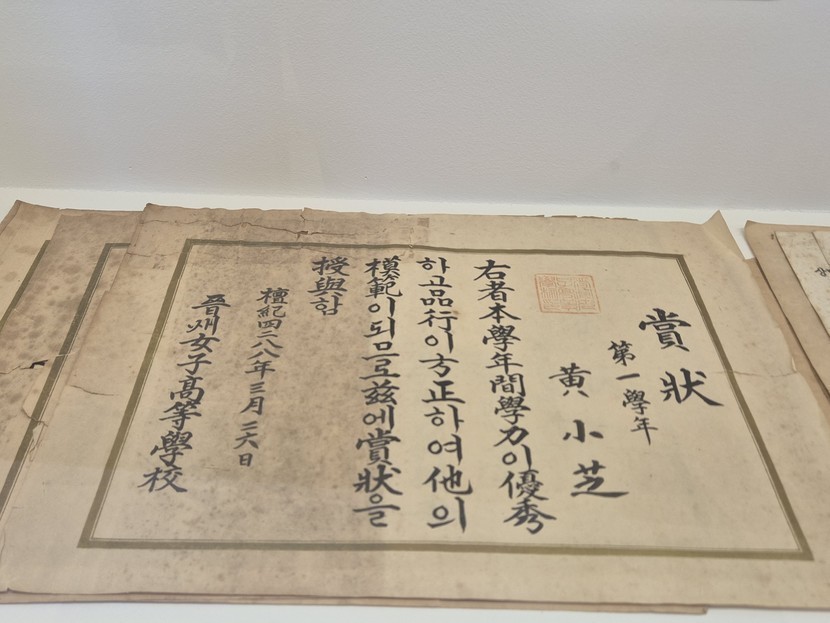 賞狀
第一學年
黃小芝
右者本學年間學力이優秀
하고品行이方正하여他의
模範이되므로玆에賞狀을
授與함
檀紀四二八八年三月二六日
晋州女子高等學校